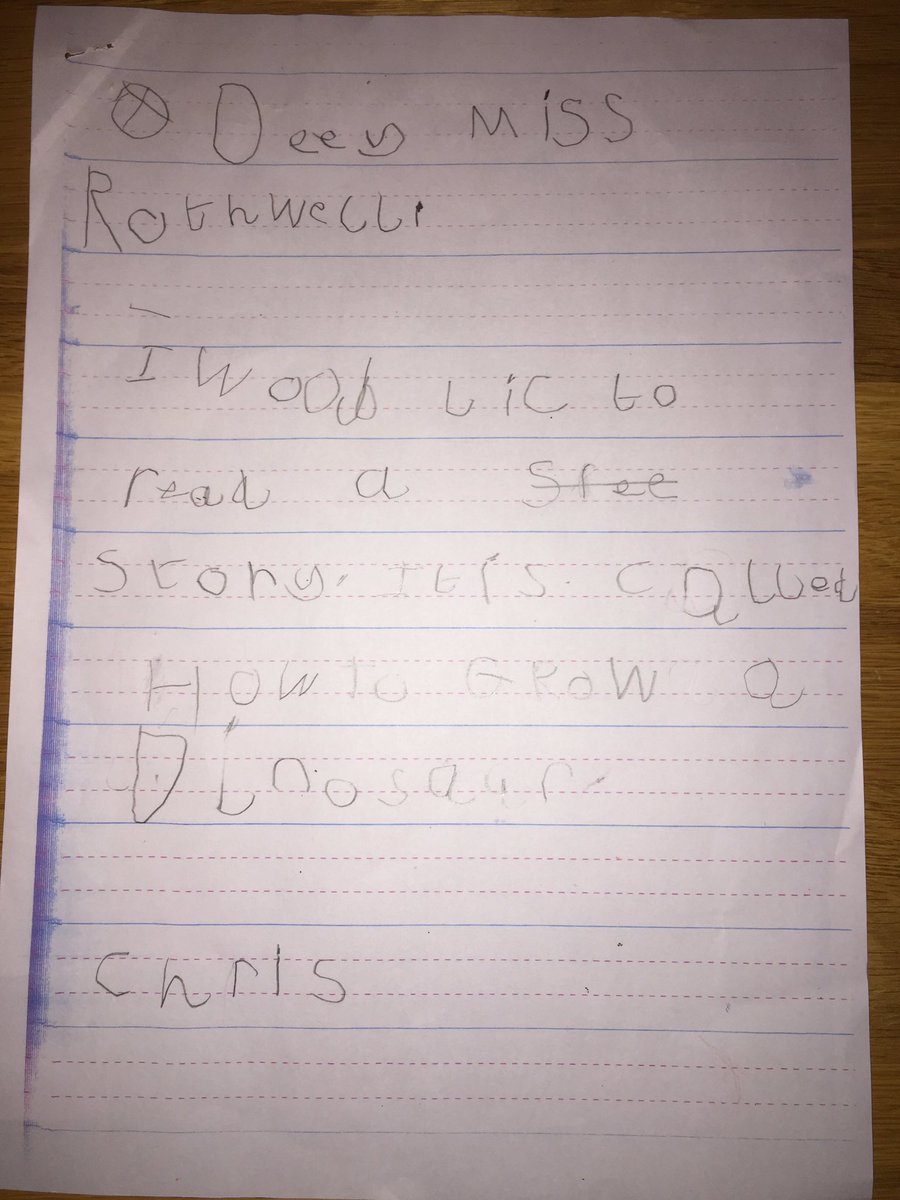 Deey Miss
Rothwell,
I wood lic to
read a Stee
Story. It is. called
How to GRow a
Dinosaur.
Chris